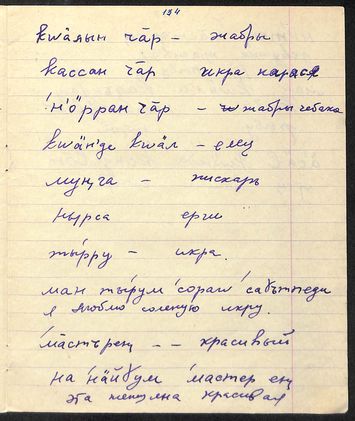 134
кwäяын чāр – жабры
кассан чāр икра карася
'н'öрран чāр – жабры чебака
кwäнде кwäл – елец
муӊга – пискарь
нырса ерш
тырру – икра.
ман тырум 'сораш
я люблю соленую икру.
'мāстърең – – красивый
на 'нäйӷум 'мастер ең
эта женщина красивая